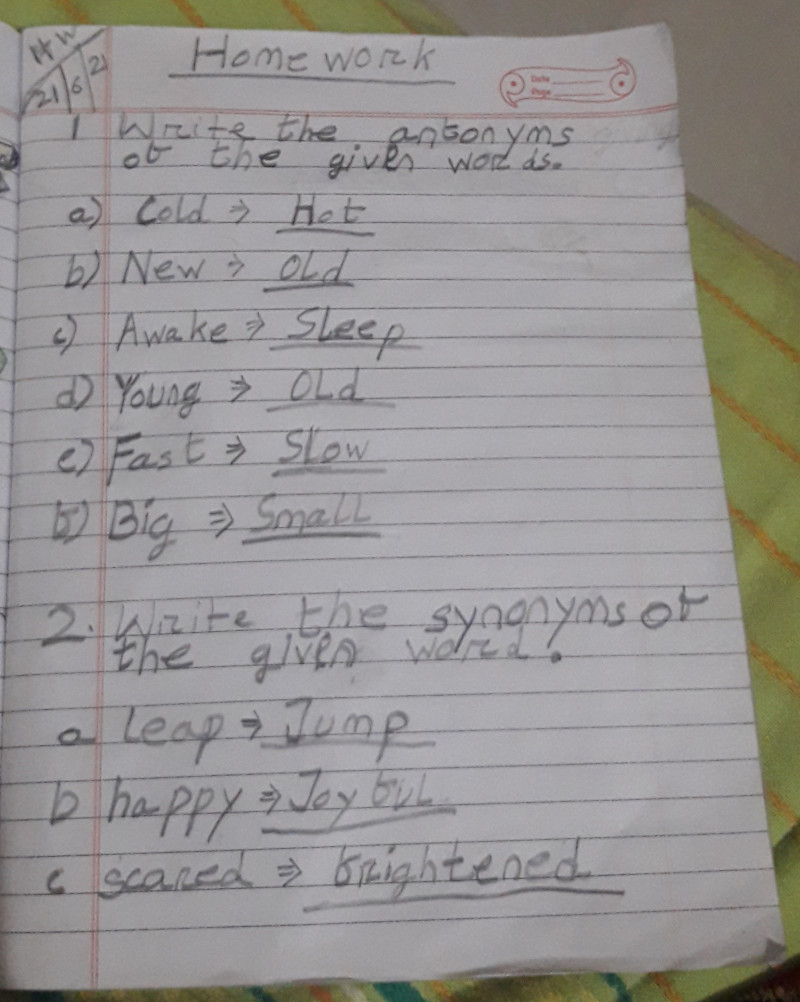 H W
21/6/21
Home work
Date
Page
1 Write the antonyms
of the given words.
a) Cold ⇒ Hot
b) New ⇒ Old
c) Awake ⇒ Sleep
d) Young ⇒ Old
e) Fast ⇒ Slow
f) Big ⇒ Small
2. Write the synonyms of
the given word.
a leap ⇒ Jump
b happy ⇒ Joyful
c scared ⇒ frightened